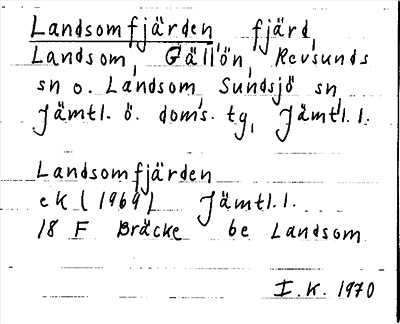 Landsomfjärden, fjärd,
Landsom, Gällön, Revsunds
sn o. Landsom, Sundsjö sn,
Jämtl. ö. doms. tg, Jämtl. l.
Landsomfjärden
ek (1969) Jämtl. l.
18 F Bräcke be Landsom
I.K. 1970